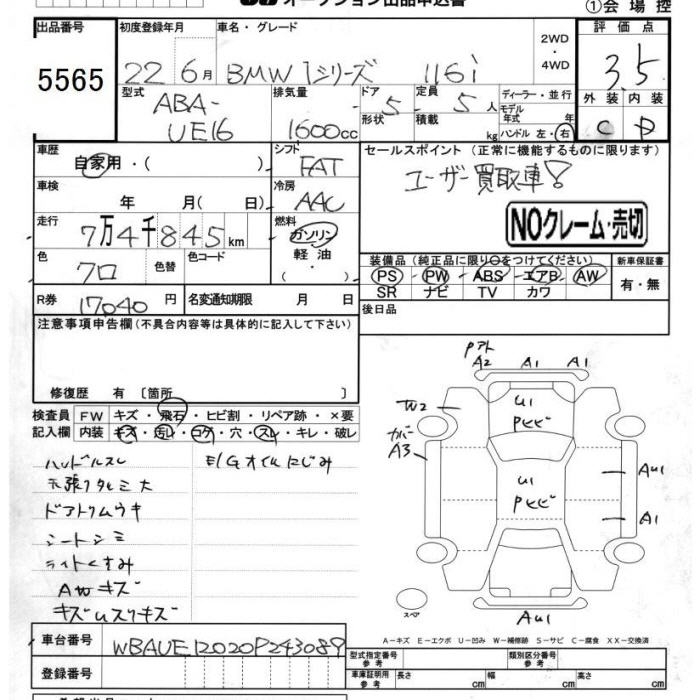 オークション出品申込書
①会場控
出品番号
5565
初度登録年月
22 6月
車名・グレード
BMW 1シリーズ 116i
2WD
・
4WD
評価点
3.5
型式
ABA-
UE16
排気量
1600cc
ドア
形状
5
定員
積載
5人
kg
ディーラー・並行
モデル
年式 年
ハンドル 左・右
外装 内装
C D
車歴
自家用・( )
シフト
FAT
セールスポイント(正常に機能するものに限ります)
ユーザー買取車!
車検
年 月( 日)
冷房
AAC
走行
7万4千845km
燃料
ガソリン
軽油
・
( )
NOクレーム・売切
色
クロ
色替
色コード
装備品(純正品に限り○をつけてください)
PS・PW・ABS・エアB・AW
SR ナビ TV カワ
新車保証書
有・無
R券
17040円
名変通知期限 月 日
後日品
注意事項申告欄(不具合内容等は具体的に記入して下さい)
修復歴 有〔箇所 〕
検査員
記入欄
FW キズ・飛石・ヒビ割・リペア跡・×要
内装 キズ・汚レ・コゲ・穴・スレ・キレ・破レ
ハンドルスレ
E/Gオイルにじみ
天張りタルミ大
ドアトリムウキ
シートシミ
ライトくすみ
AWキズ
キズUスリキズ
Pアト
A2 A1 A1
U1
Pヒビ
W2
カバー
A3
U1
Pヒビ
AU1
A1
AU1
スペア
A-キズ E-エクボ U-凹み W-補修跡 S-サビ C-腐食 XX-交換済
車台番号
WBAUE12020P243089
登録番号
型式指定番号
参考
類別区分番号
参考
車庫証明用
参考
長さ cm 幅 cm 高さ cm